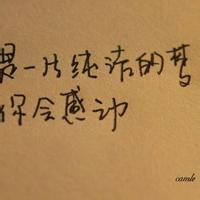 是一片纯洁的梦
你会感动
camle